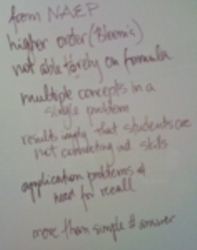 from NAEP
higher order (Bloom's)
not able to rely on formula
multiple concepts in a
single problem
results imply that students are
not connecting ind skills
application problems &
need for recall
more than simple # answer